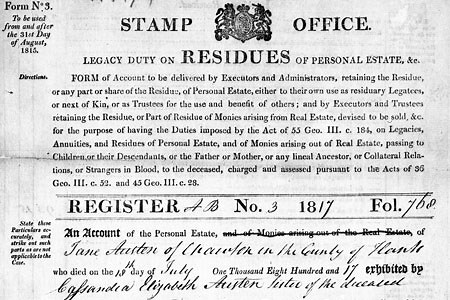 Form No. 3.
To be used
from and after
the 31st Day
of August,
1815.
STAMP OFFICE.
LEGACY DUTY ON RESIDUES OF PERSONAL ESTATE, &c.
Directions.
FORM of Account to be delivered by Executors and Administrators, retaining the Residue,
or any part or share of the Residue, of Personal Estate, either to their own use as residuary Legatees,
or next of Kin, or as Trustees for the use and benefit of others; and by Executors and Trustees
retaining the Residue, or Part of Residue of Monies arising from Real Estate, devised to be sold, &c.
for the purpose of having the Duties imposed by the Act of 55 Geo. III. c. 184, on Legacies,
Annuities, and Residues of Personal Estate, and of Monies arising out of Real Estate, passing to
Children or their Descendants, or the Father or Mother, or any lineal Ancestor, or Collateral Rela-
tions, or Strangers in Blood, to the deceased, charged and assessed pursuant to the Acts of 36
Geo. III. c. 52. and 45 Geo. III. c. 28.
REGISTER AB No. 3 1817 Fol. 768
State these
Particulars ac-
curately, and
strike out such
parts as are not
applicable to the
Case.
An Account of the Personal Estate, and of Monies arising out of the Real Estate, of
Jane Austen of Chawton in the County of Hants
who died on the 18th day of July One Thousand Eight Hundred and 17 exhibited by
Cassandra Elizabeth Austen Sister of the deceased